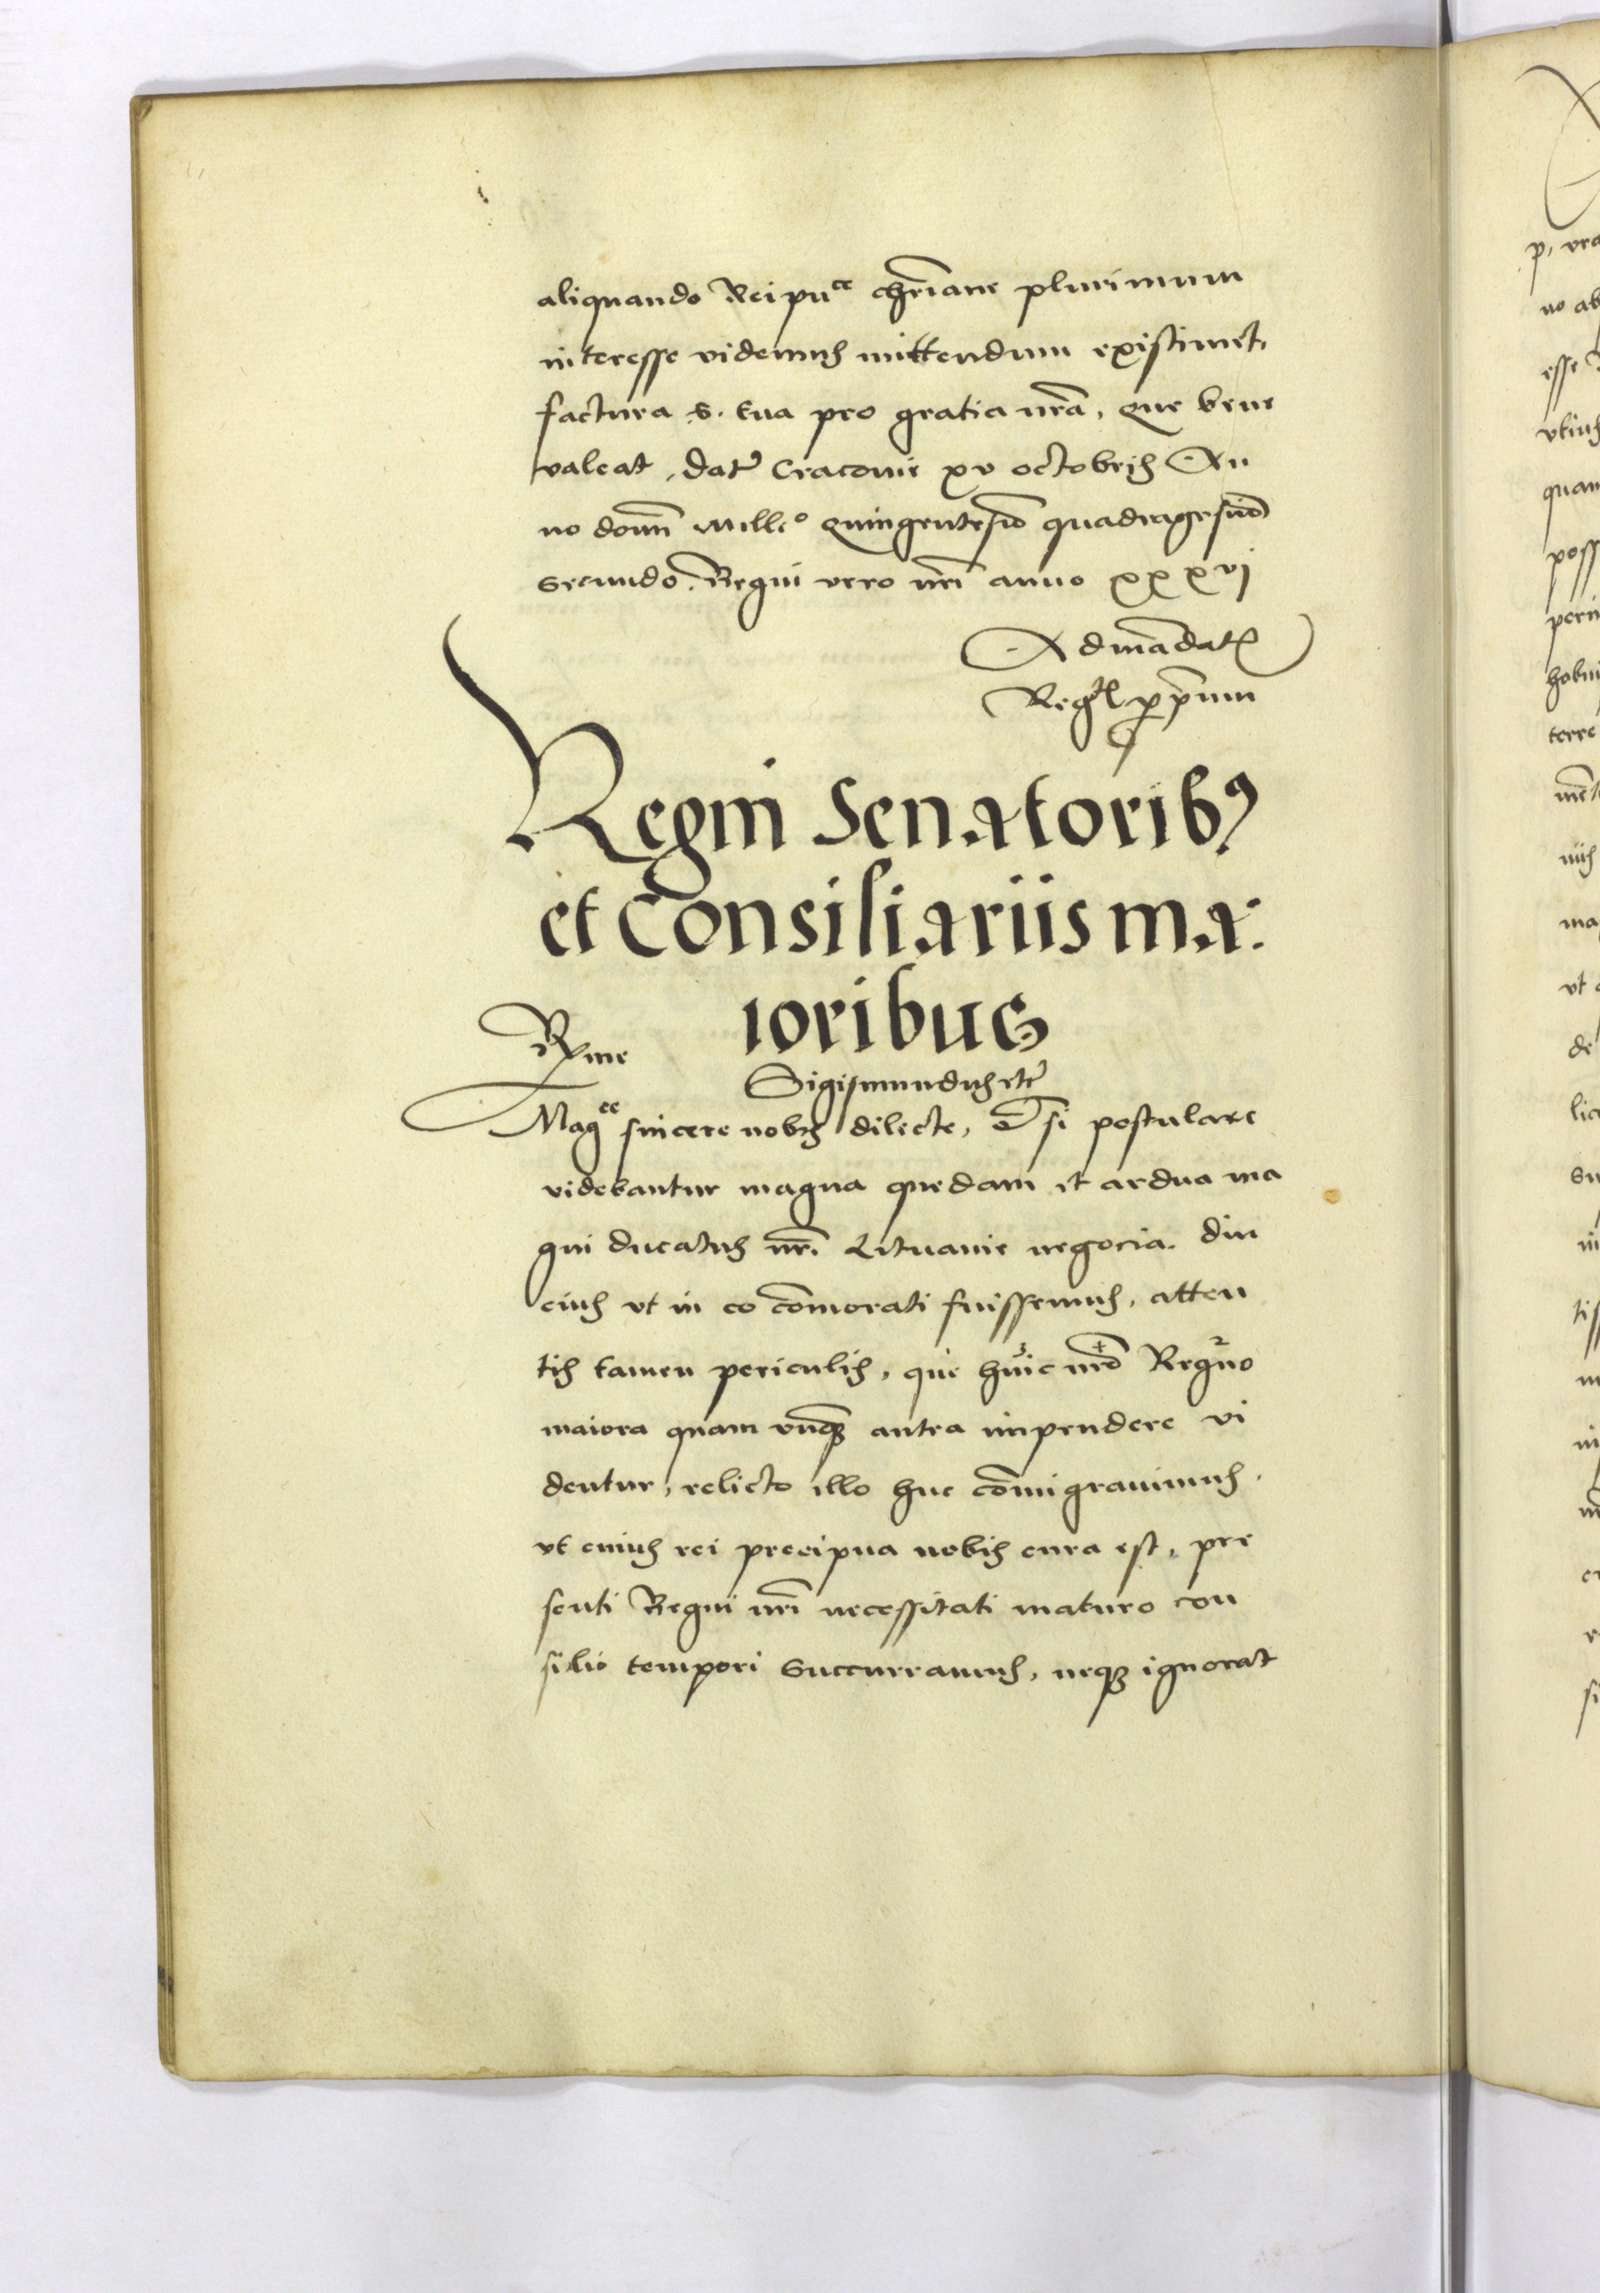 aliquando Reipuce chr̃iane plurimum
interesse videmus mittendum existimet,
factura S. tua pro gratia nrã, Que bene
valeat, dat̃ Cracovie xv octobris An
no domñ Milleo Quingentesiõ quadragesiõ
secundo. Regni vero nrĩ anno xxxvj
Ad mãdat
Reg pprium
Regni Senatorib9
et Consiliariis ma:
ioribus
Rme
Sigismundus etc̃
Magce sincere nobis dilecte, Etsi postulare
videbantur magna quedam et ardua ma
gni ducatus nrĩ Lituanie negocia. diu
cius vt in eo cõmorati fuissemus, atten
tis tamen periculis, que huic nrõ Regno
maiora quam vnq̃ antea impendere vi
dentur, relicto illo huc cõmigravimus.
vt cuius rei precipua nobis cura est, pre
senti Regni nrĩ necessitati maturo con
silio tempori succurramus, neqз ignorat